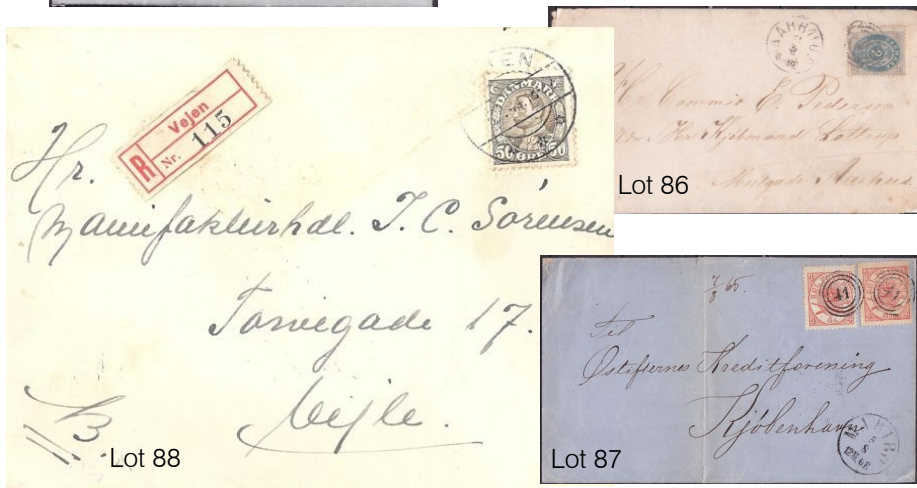 Vejen
R
Nr. 115
VEJEN
DANMARK
50 ØRE 50
Hr.
Manufakturhdl. J. C. Sörensen
Torvegade 17.
Vejle.
Lot 88
AARHUUS
2
Hr Commis E. Pedersen
Hr Kjøbmand Lottrup
Aarhus.
Lot 86
7/8 65.
41
Til
Østifternes Kreditforening
Kjøbenhavn
Lot 87